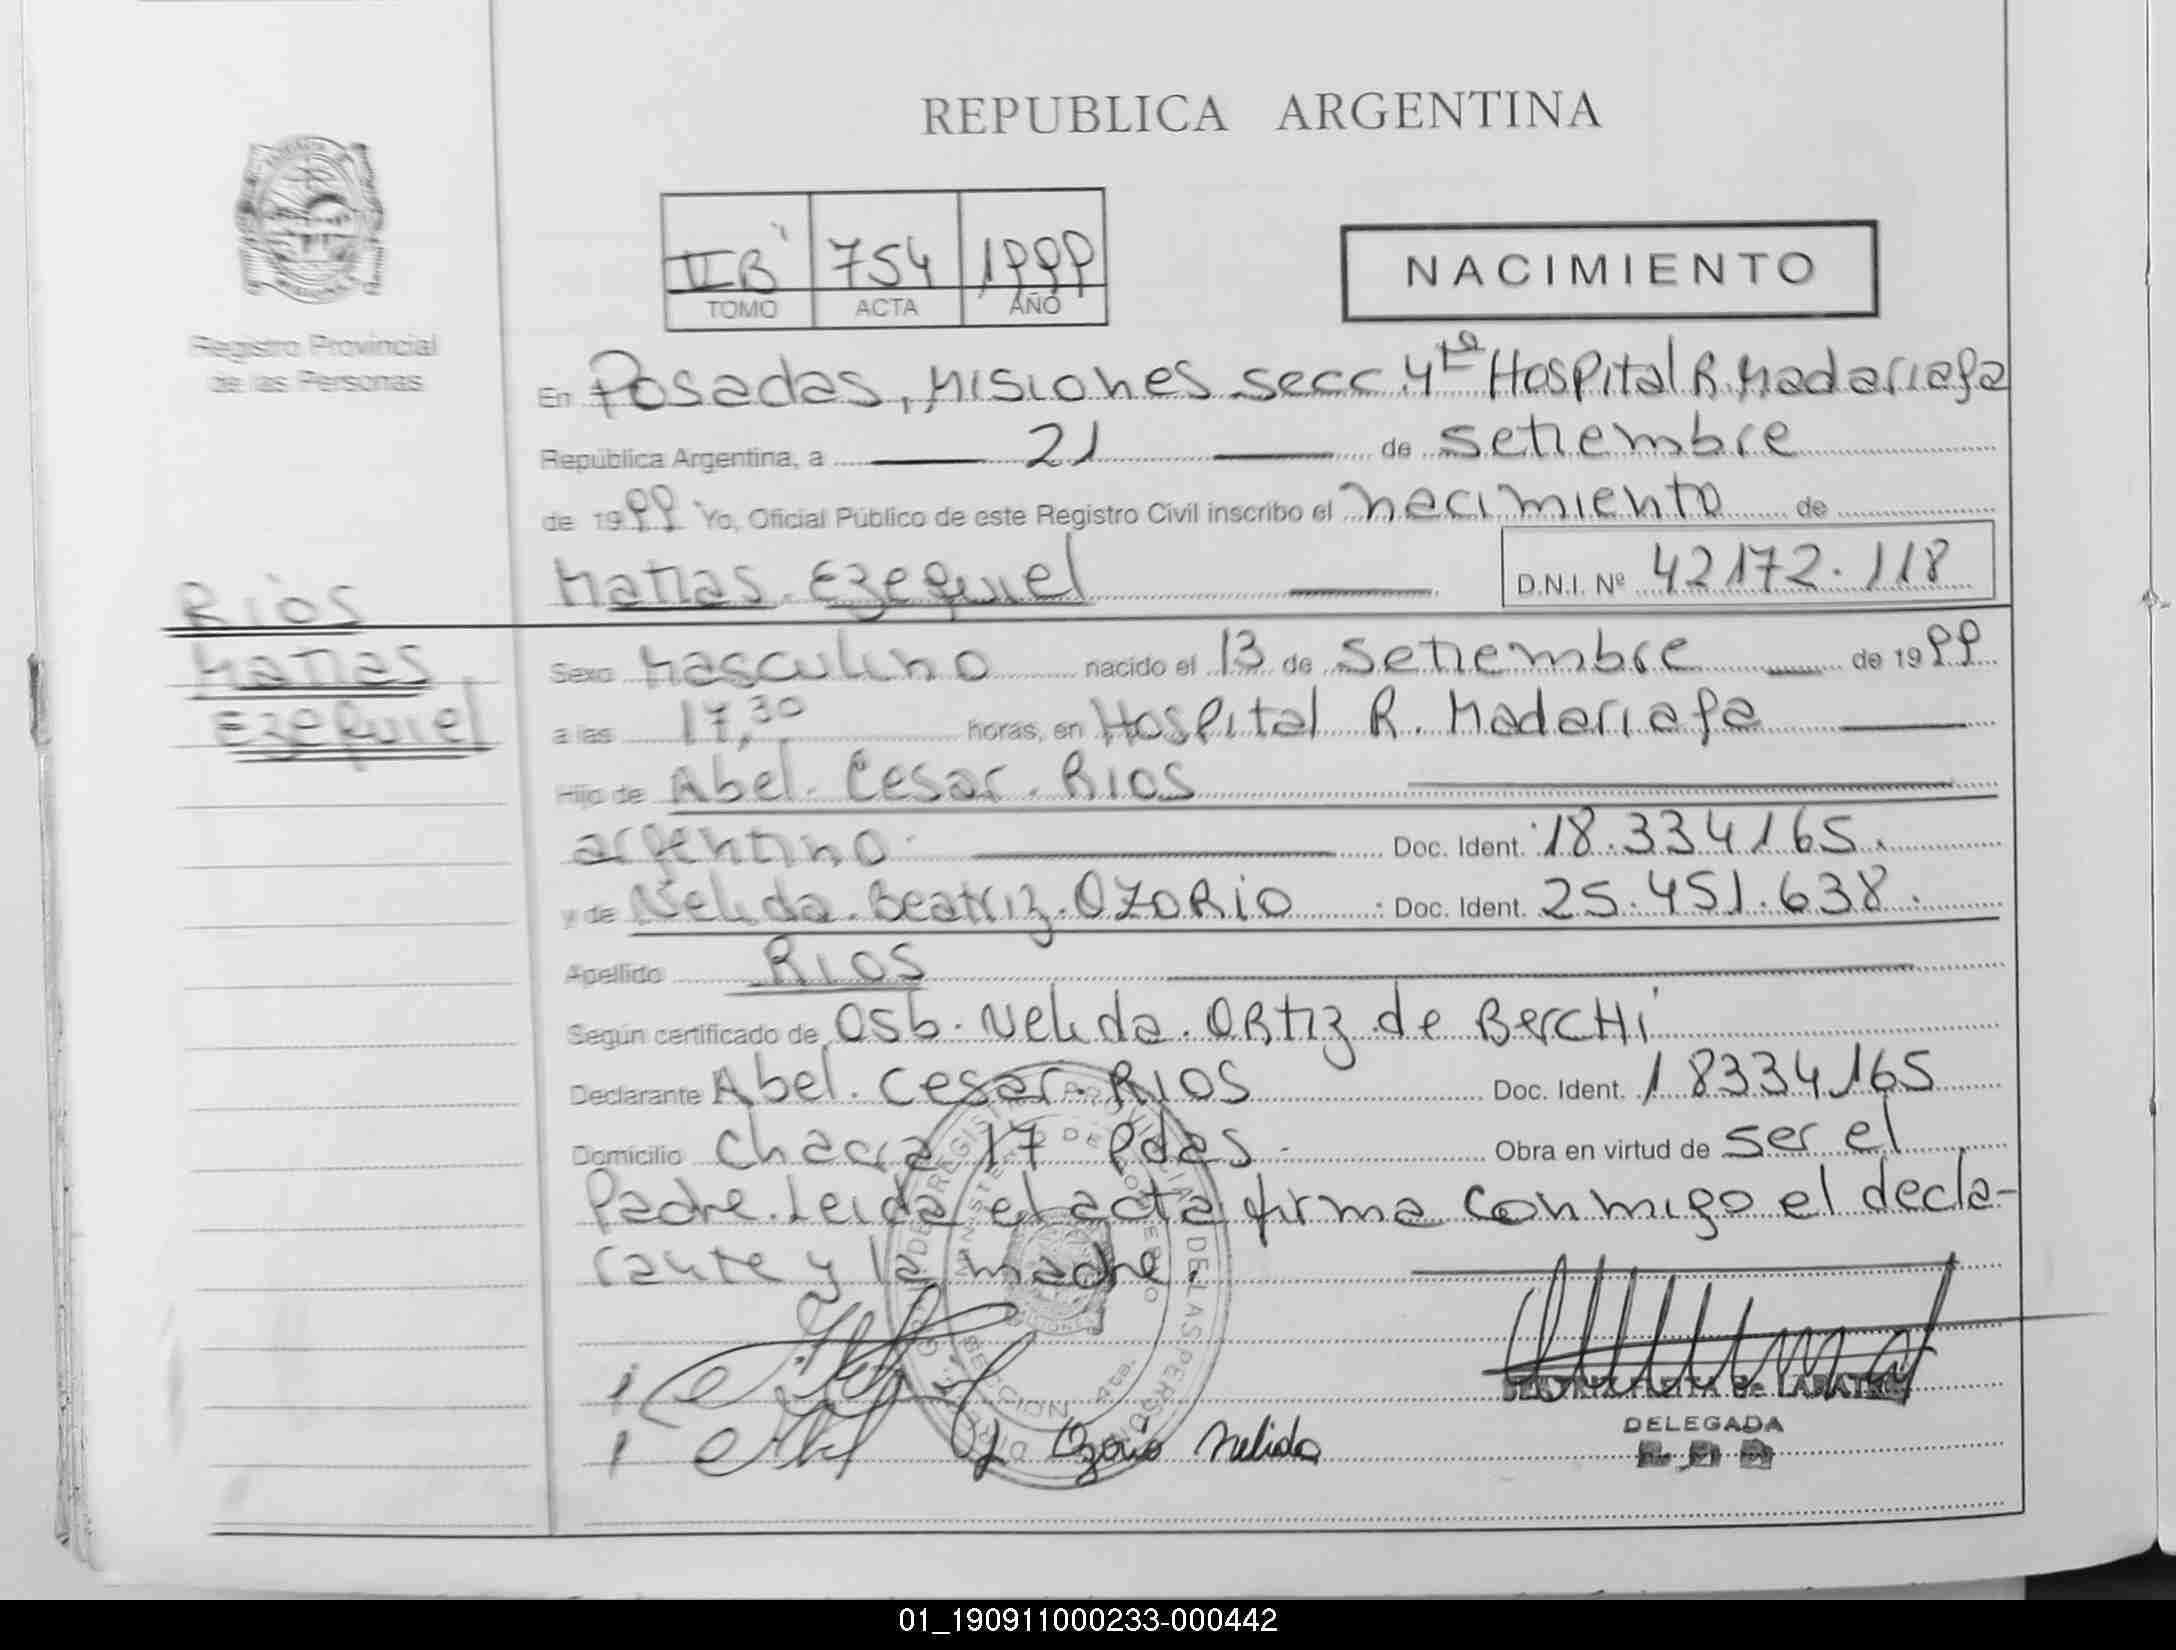 REPUBLICA ARGENTINA
II B 754 1999
TOMO ACTA AÑO
NACIMIENTO
Registro Provincial
de las Personas
En Posadas, Misiones secc. 4ta Hospital R. Madariaga
República Argentina, a 21 de setiembre
de 1999 Yo, Oficial Público de este Registro Civil inscribo el nacimiento de
Matias. Ezequiel D.N.I. Nº 42172.118
Rios
Matias
Ezequiel
Sexo Masculino nacido el 13 de Setiembre de 1999
a las 17,30 horas, en Hospital R. Madariaga
Hijo de Abel. Cesar. Rios
argentino. Doc. Ident. 18.334165.
y de Nelida. Beatriz. OZORiO Doc. Ident. 25.451.638.
Apellido RIOS
Según certificado de Osb. Nelida. ORtiz de BercHi
Declarante Abel. Cesar. RIOS Doc. Ident. 18334165
Domicilio Chacra 17 Pdas. Obra en virtud de ser el
Padre. Leida el acta firma conmigo el decla-
rante y la madre.
DIREC. GRAL. DEL REGISTRO PROVINCIAL DE LAS PERSONAS
MINISTERIO DE GOBIERNO
SECCION 4ta.
Ozorio Nelida
de
DELEGADA
01_190911000233-000442